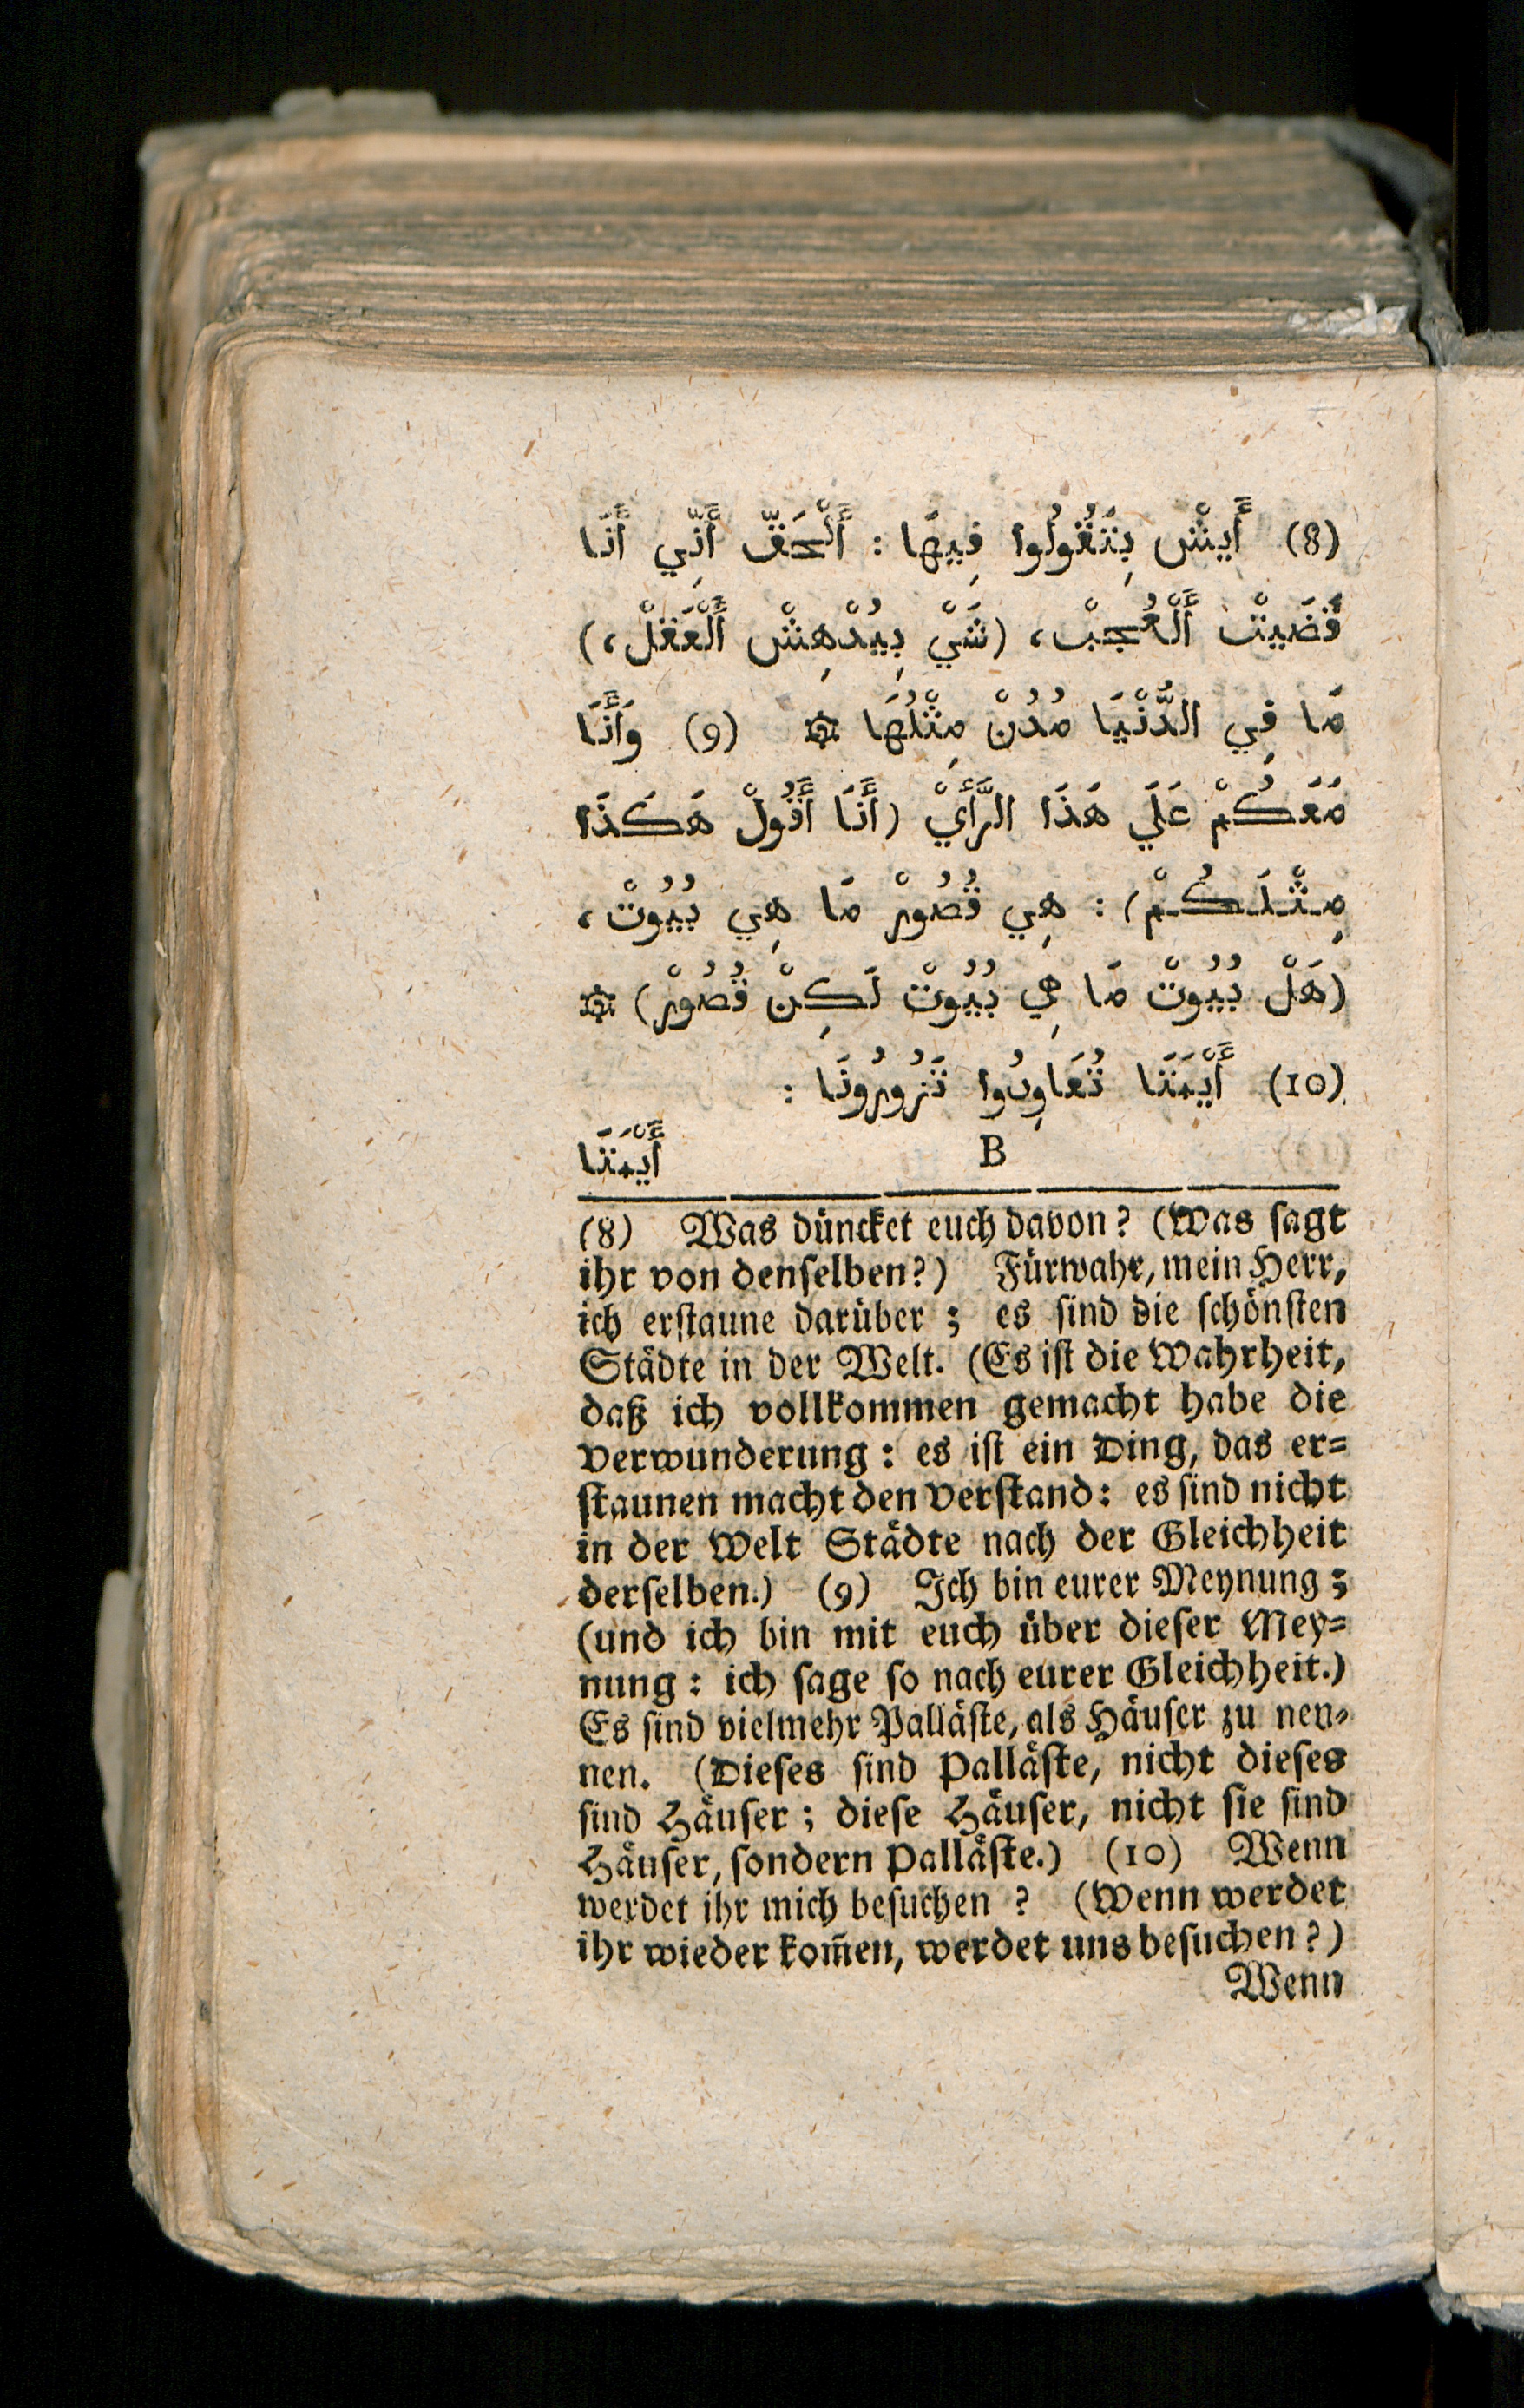 (8) أَيْشْ بِتَقُولُوا فِيهَا : أَلْحَقّ أَنِّي أَنَا
قَضَيْتْ أَلْعُجْبْ، (شَيْ بِيُدْهِشْ أَلْعَقَلْ،)
مَا فِي الدُّنْيَا مُدُنْ مِثْلُهَا ۞ (9) وَأَنَا
مَعَكُمْ عَلَي هَذَا الرَّأَيْ (أَنَا أَقُولْ هَكَذَا
مِثْلَكُمْ) : هِي قُصُورْ مَا هِي بُيُوتْ،
(هَلْ بُيُوتْ مَا هِي بُيُوتْ لَكِنْ قُصُورْ) ۞
(10) أَيْمَتَا تُعَاوِدُوا تَزُورُونَا :
B أَيْمَتَا
(8) Was düncket euch davon? (Was ſagt
ihr von denſelben?) Fürwahr, mein Herr,
ich erſtaune darüber; es ſind die ſchönſten
Städte in der Welt. (Es iſt die Wahrheit,
daß ich vollkommen gemacht habe die
Verwunderung: es iſt ein Ding, das er=
ſtaunen macht den Verſtand: es ſind nicht
in der Welt Städte nach der Gleichheit
derſelben.) (9) Ich bin eurer Meynung;
(und ich bin mit euch über dieſer Mey=
nung: ich ſage ſo nach eurer Gleichheit.)
Es ſind vielmehr Palläſte, als Häuſer zu nen=
nen. (Dieſes ſind Palläſte, nicht dieſes
ſind Häuſer; dieſe Häuſer, nicht ſie ſind
Häuſer, ſondern Palläſte.) (10) Wenn
werdet ihr mich beſuchen? (Wenn werdet
ihr wieder kom̄en, werdet uns beſuchen?)
Wenn